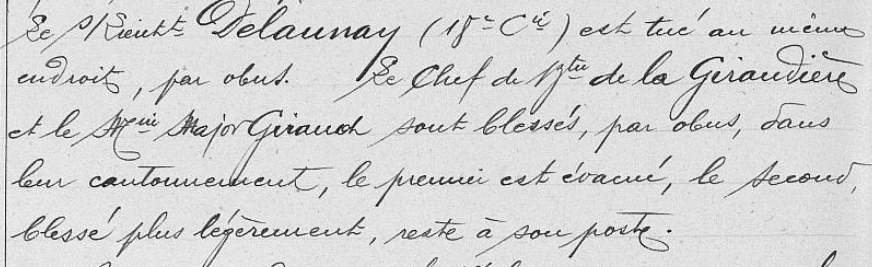 Le s/Lieutt Delaunay (18e Cie) est tué au même
endroit, par obus. Le Chef de Btn de la Giraudière
et le Mein Major Giraud sont blessés, par obus, dans
leur cantonnement, le premier est évacué, le second,
blessé plus légèrement, reste à son poste.